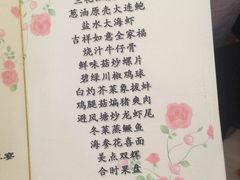 葱油原壳大连鲍
盐水大海虾
吉祥如意全家福
烧汁牛仔骨
鲜味菇炒螺片
碧绿川椒鸡球
白灼芥菜象拔蚌
鸡腿菇煸猪爽肉
避风塘炒龙虾尾
冬菜蒸鳜鱼
海参花喜面
美点双辉
合时果盘
宴